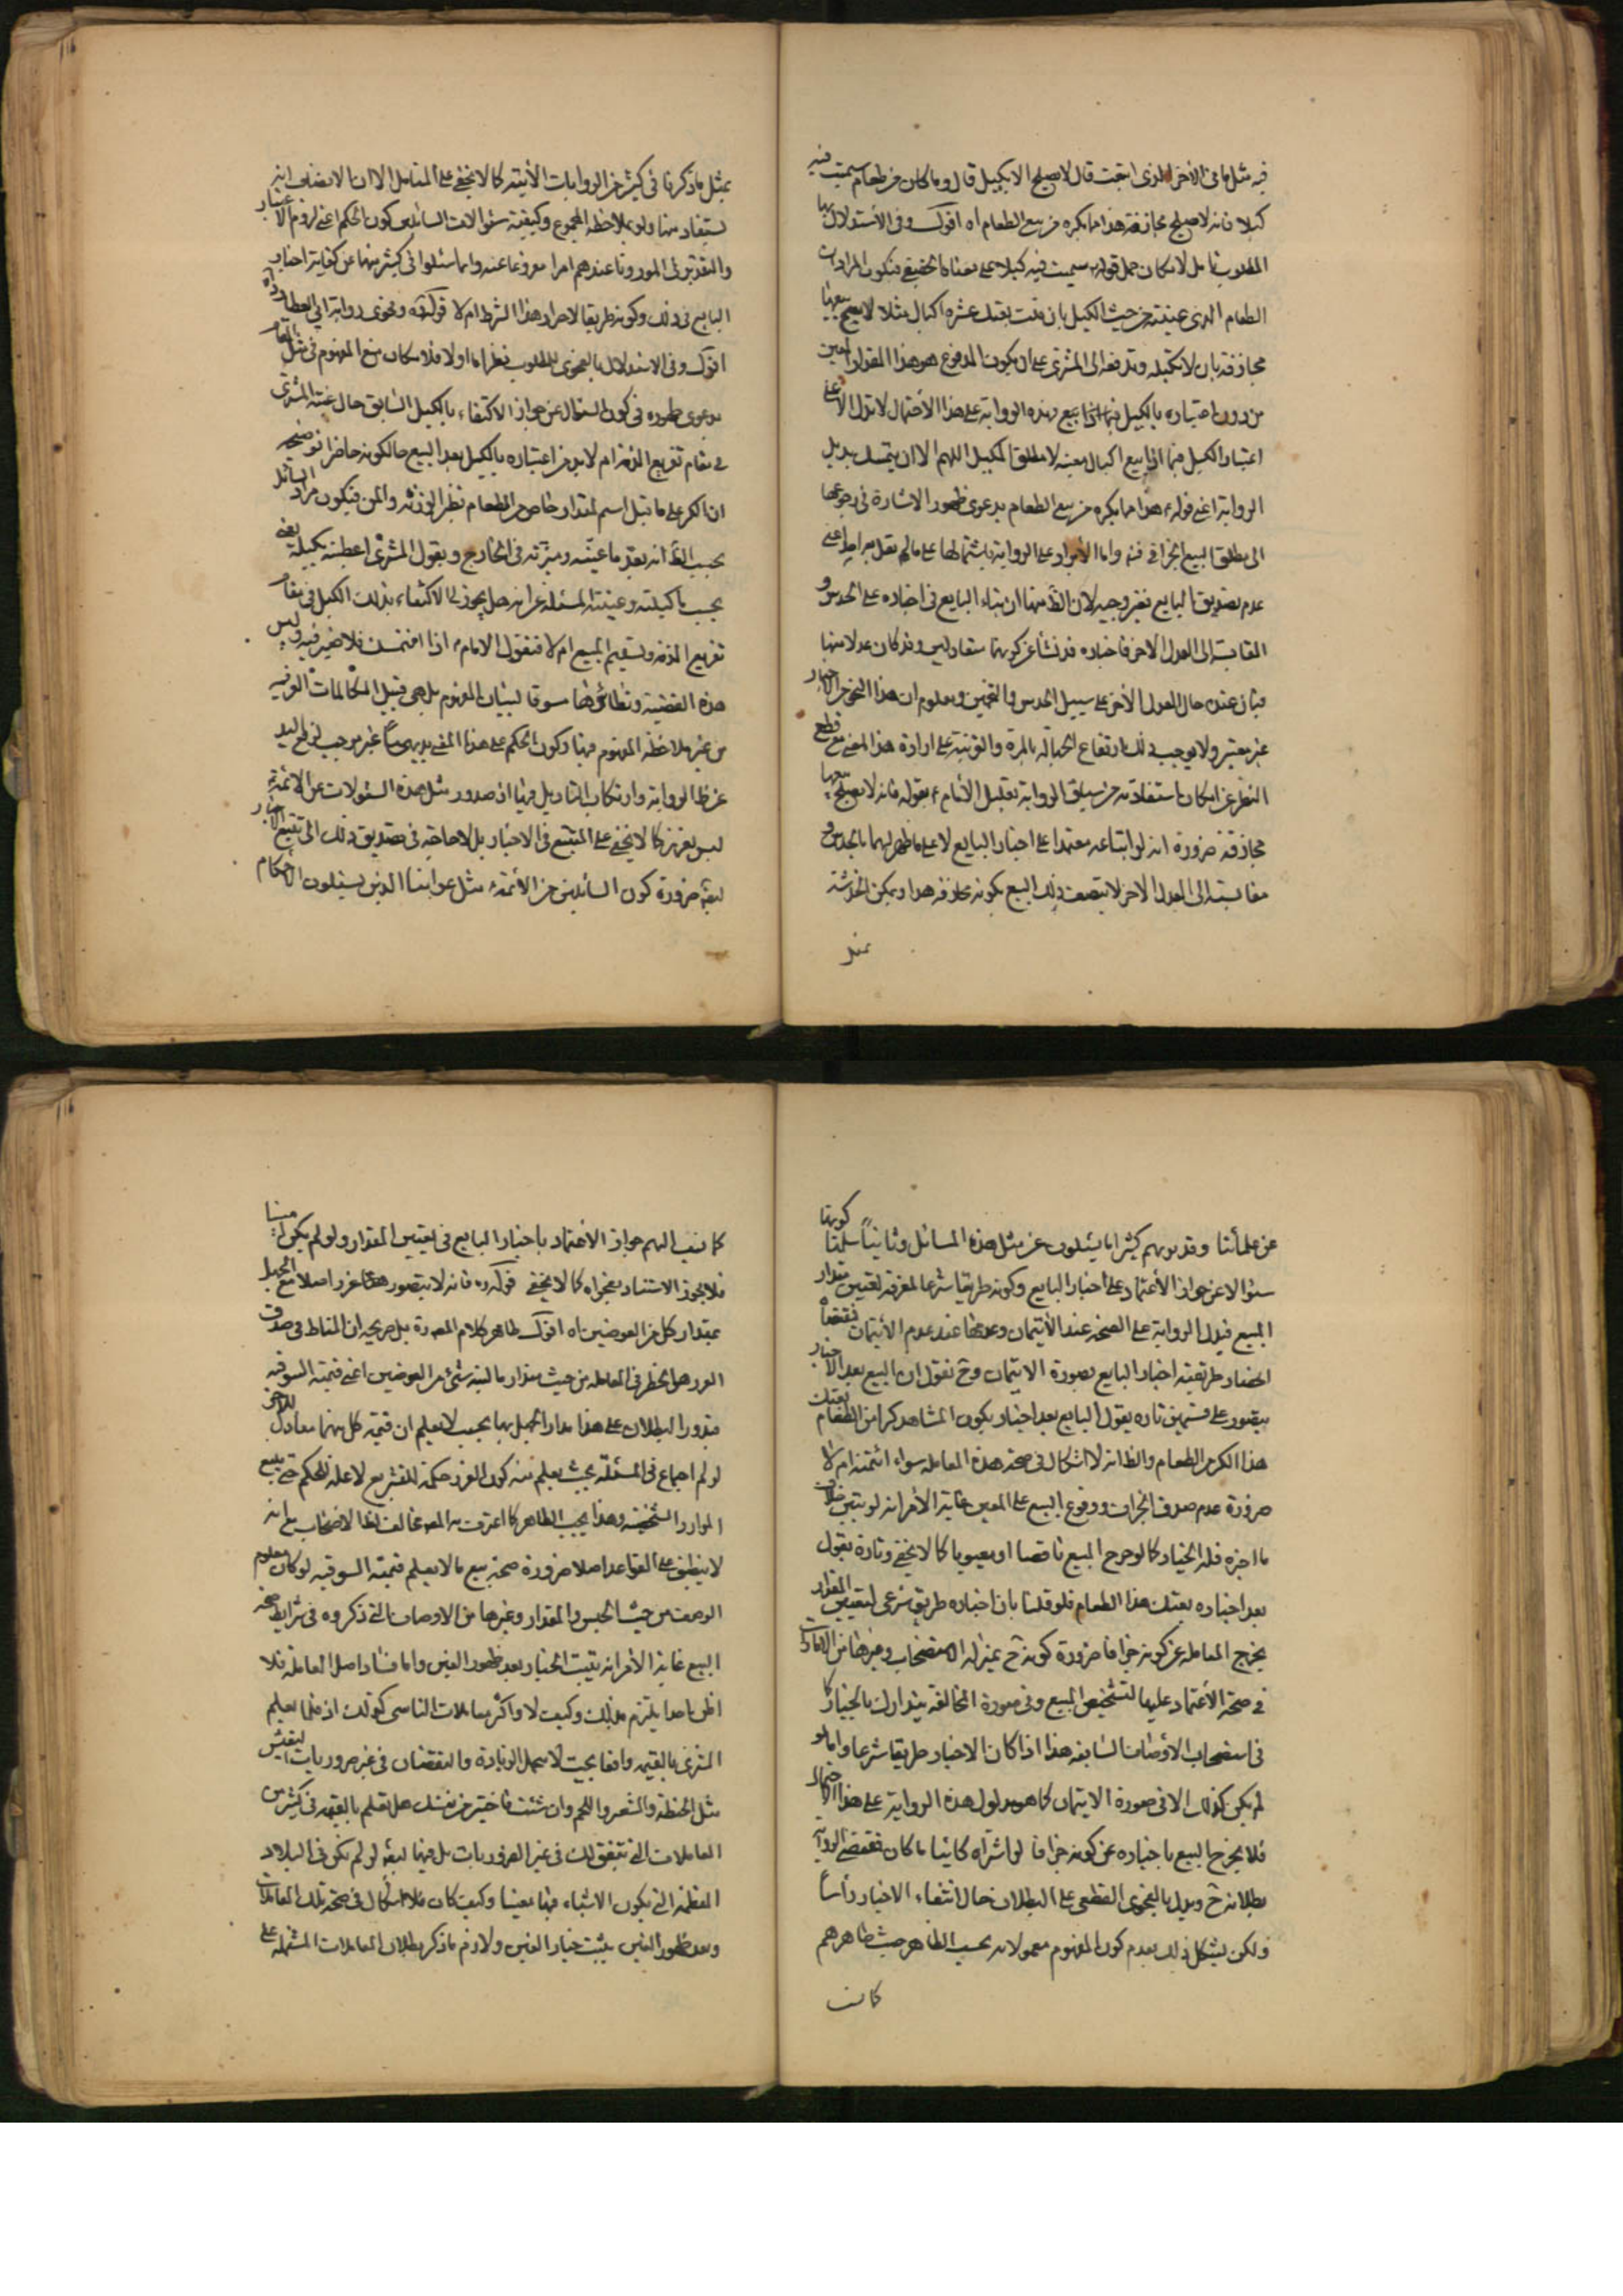 فيه مثل ما فى الآخر الذى ابتعت قال لا يصلح الا بكيل قال وما كان من طعام سميت فيه
كيلا فانه لا يصلح مجازفة هذا مما يكره من بيع الطعام اه اقول وفى الأستدلال بها
المطلوب تامل لامكان حمل قوله سميت فيه كيلا على معناه الحقيقى فيكون المراد ان
الطعام الذى عينته من حيث الكيل بان قلت بعتك عشرة اكيال مثلا لا يصح بيعها
مجازفة بان لا تكيله وتدفعه الى المشترى على ان يكون المدفوع هو هذا المقدار المعين
من دون اختباره بالكيل وهذه الرواية على هذا الأحتمال لا تدل الا على
اعتبار الكيل فيما اذا بيع اكيال معينة لا مطلق المكيل اللهم الا ان يتمسك بذيل
الرواية اعنى قوله هذا مما يكره من بيع الطعام بدعوى ظهور الاشارة فى رجوعها
الى مطلق البيع الجزافى فت واما الأيراد على الرواية باشتمالها على ما لم يقل به احد اعنى
عدم تصديق البايع فغير وجيه لان الظ منها ان بناء البايع فى اخباره على الحدس و
المقايسة الى العدل الاخر فاخباره قد نشأ عن كونهما متعادلين وقد كان عدلا منها
فبان عنده حال العدل الأخر على سبيل الحدس والتخمين ومعلوم ان هذا النحو من الاخبار
غير معتبر ولا يوجب ذلك ارتفاع الجهالة بالمرة والقرينة على ارادة هذا المعنى مع قطع
النظر عن امكان استفادته من سياق الرواية تعليل الأمام بقوله فانه لا يصلح بيعها
مجازفة ضرورة انه لو ابتاعه معتمدا على اخبار البايع لا على ما ظهر لهما بالحدس و
مقايسته الى العدل الاخر لا يتصف ذلك البيع بكونه مجازفة هذا ويمكن الخدشة
بمثل
بمثل ما ذكرنا فى كثير من الروايات الأتية كما لا يخفى على المتامل الا ان الانصاف انه
يستفاد منها ولو بملاحظة المجموع وكيفية سئوالات السائلين كون الحكم اعنى لزوم الاعتبار
والتقدير فى المورد ثابتا عندهم امرا مفروغا عنه وانما سئلوا فى كثير منها عن كفاية اخبار
البايع فى ذلك وكونه طريقا لاحراز هذا الشرط ام لا قوله وفحوى رواية ابى العطارد اه
اقول وفى الاستدلال بالفحوى للمطلوب نظر اما اولا فلامكان منع المفهوم فى مثل المقام
بدعوى ظهوره فى كون السئوال عن جواز الاكتفاء بالكيل السابق حال غيبة المشترى
فى مقام تفريغ الذمة ام لا بد من اعتباره بالكيل بعد البيع حال كونه حاضرا توضيحه
ان الكر على ما قيل اسم لمقدار خاص من الطعام نظير الوزنة والمن فيكون مراد السائل
بحسب الظ انه بعد ما عينته وميزته فى الخارج ويقول المشترى اعطنيه بكيلك يعنى
بحسب ما كيلته وعينته المسئلة عن انه هل يجوز لى الاكتفاء بذلك الكيل فى مقام
تفريغ الذمة وتسليم المبيع ام لا فنقول الامام اذا ائتمنك فلا ضير فيه وليس
هذه القضية ونظائرها مسوقا لبيان المفهوم بل هى من قبيل المكالمات العرفية
من غير ملاحظة المفهوم فيها وكون الحكم على هذا المعنى بديهيا غير موجب لرفع اليد
عن ظ الرواية وارتكاب التاويل فيها اذ صدور مثل هذه السئولات عن الائمة
ليس بعزيز كما لا يخفى على المتتبع فى الاخبار بل لا حاجة فى تصديق ذلك الى تتبع الاخبار
ايضا ضرورة كون السائلين من الأئمة مثل عوامنا الذين يسئلون الاحكام
عن علمائنا وقد تريهم كثيرا ما يسئلون عن مثل هذه المسائل وثانيا سلمنا كونها
سئوالا عن جواز الأعتماد على اخبار البايع وكونه طريقا شرعا لمعرفة تعيين مقدار
المبيع فيدل الرواية على الصحة عند الأئتمان وعدمها عند عدم الأئتمان فمقتضاه
اختصار طريقية اخبار البايع بصورة الايتمان وح نقول ان البيع بعد الاخبار
يتصور على قسمين تارة يقول البايع بعد اخباره بكون المشاهد كرا من الطعام بعتك
هذا الكر من الطعام والظ انه لا اشكال فى صحة هذه المعاملة سواء ائتمنه ام لا
ضرورة عدم صدق الجزاف ووقوع البيع على المعين غاية الأمر انه لو تبين خلاف
ما اخبره فله الخيار كما لو خرج المبيع ناقصا او معيوبا كما لا يخفى وتارة يقول
بعد اخباره بعتك هذا الطعام فلو قلنا بان اخباره طريق شرعى لتعيين المقدار
يخرج المعاملة عن كونه جزافا ضرورة كونه ح بمنزلة الاستصحاب وغيرها من الامارات
فى صحة الأعتماد عليها لتشخيص المبيع وفى صورة المخالفة يتدارك بالخيار كما
فى استصحاب الاوصاف السابقة هذا اذا كان الاخبار طريقا شرعا واما لو
لم يكن كذلك الا فى صورة الايتمان كما هو مدلول هذه الرواية على هذا الاحتمال
فلا يخرج البيع باخباره عن كونه جزافا لو اشتراه كائنا ما كان فمقتضى الرواية
بطلانه ح ويدل بالفحوى القطعى على البطلان حال انتفاء الاخبار رأسا
ولكن يشكل ذلك بعدم كون المفهوم معمولا به بحسب الظاهر حيث ظاهرهم
كما نسب
كما نسب اليهم جواز الأعتماد باخبار البايع فى تعيين المقدار ولو لم يكن امينا
فلا يجوز الاستناد بفحواه كما لا يخفى قوله ره فانه لا يتصور هنا غرر اصلا مع الجهل
بمقدار كل من العوضين اه اقول ظاهر كلام المص ره بل صريحه ان المناط فى صدق
الغرر هو الخطر فى المعاملة من حيث مقدار مالية شئ من العوضين اعنى قيمته السوقية
فيدور البطلان على هذا مدار الجهل بها بحيث لا يعلم ان قيمة كل منهما معادل للاخر
لو لم اجماع فى المسئلة بحيث يعلم منه كون الغرر حكمة للتشريع لا علة للحكم حتى يتبع
الموارد الشخصية وهذا بحسب الظاهر كما اعترف به المص مخالف لظ الاصحاب مع انه
لا ينطبق على القواعد اصلا ضرورة صحة بيع ما لا يعلم قيمته السوقية لو كان معلوم
الوصف من حيث الجنس والمقدار وغيرها من الاوصاف التى ذكروه فى شرايط صحة
البيع غاية الأمر انه يثبت الخيار بعد ظهور الغبن واما فساد اصل المعاملة فلا
اظن احدا يلتزم بذلك وكيف لا واكثر معاملات الناس كذلك اذ قلما يعلم
المشترى بالقيمة واقعا بحيث لا يحتمل الزيادة والنقصان فى غير ضروريات التعيش
مثل الحنطة والشعير واللحم وان شئت فاختبر من نفسك هل تعلم بالقيمة فى كثير من
المعاملات التى يتفق لك فى غير الضروريات بل فيها ايضا لو لم تكن فى البلاد
العظيمة التى يكون الاشياء فيها معينا وكيف كان فلا اشكال فى صحة تلك المعاملات
وبعد ظهور الغبن يثبت خيار الغبن ولازم ما ذكر بطلان المعاملات المشتملة على